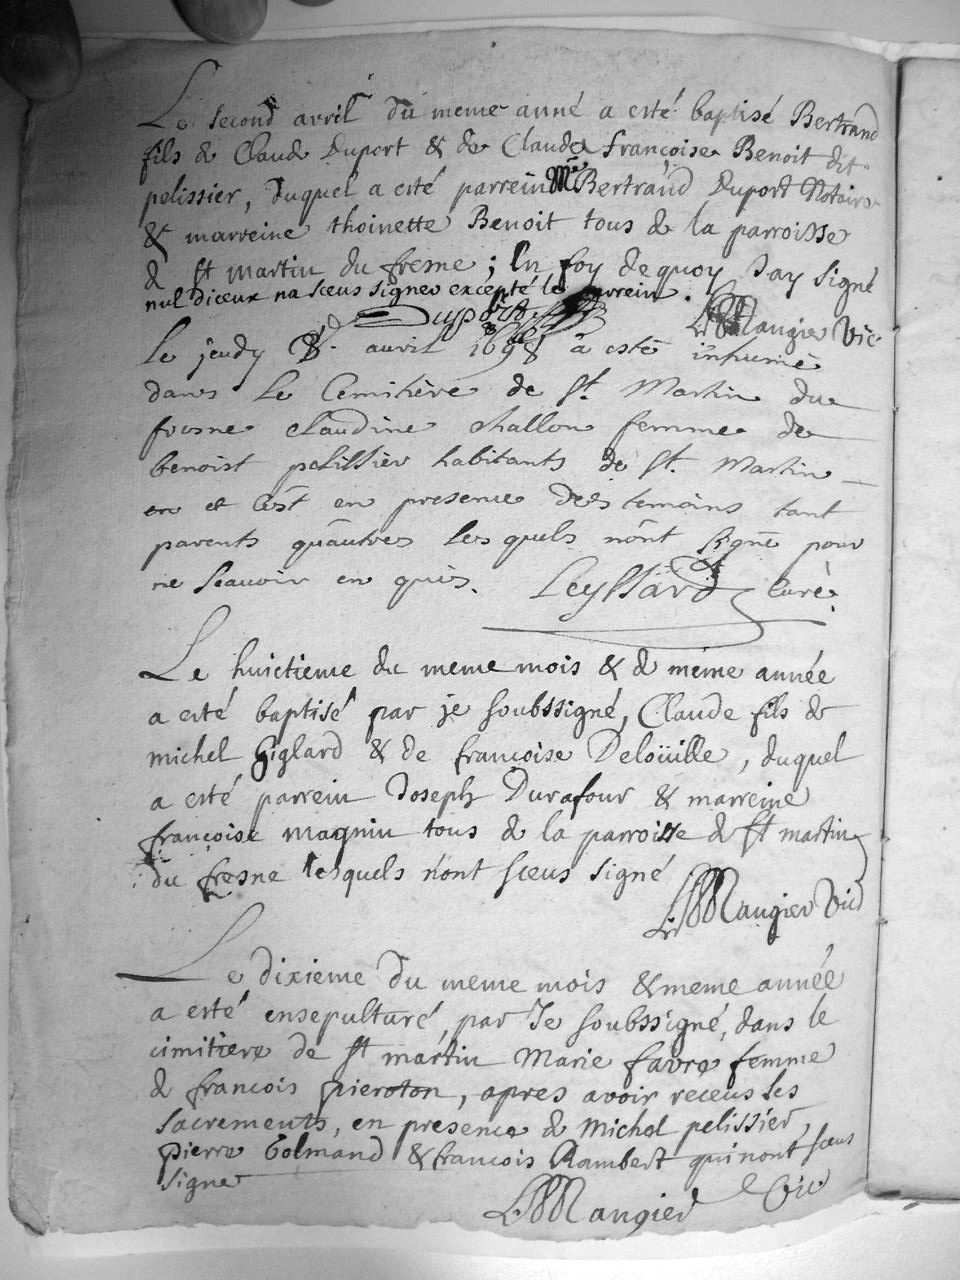 Le second avril du meme anné a esté baptisé Bertrand
fils de Claud Duport & de Claudé françoise Benoit dit
pelissier, duquel a esté parrein Me Bertrand Duport Notaire
& marreine thoinette Benoit tous de la parroisse
de st martin du fresne ; En foy dequoy Jay signé
nul diceux na sceus signer excepté le parrein .
Duport LMaugier Vic
le jeudy 8. auril 1698 a esté inhumé
dans le Cemitiére de St. Martin du
fresne Claudine Challon femme de
benoist pelissier habitants de st. Martin
en et c'est en presence des temoins tant
parents qu'autres lesquels n'ont signé pour
ne scauoir en quis. Leyssard Curé.
Le huictieme du meme mois & de méme année
a esté baptisé par je soubssigné, Claude fils de
michel Giglard & de françoise Deloüille, duquel
a esté parrein Joseph Durafour & marreine
françoise magnin tous de la parroisse de st martin
du fresne lesquels n'ont sceus signé
LMaugier Vic
Le dixieme du meme mois & meme année
a esté ensepulturé, par Je soubssigné, dans le
cimitiere de st martin Marie favre femme
de francois pieroton, apres avoir receus les
sacrements, en presence de Michel pelissier,
pierre Golmand & francois Rambert qui n'ont sceus
signer
LMaugier Vic